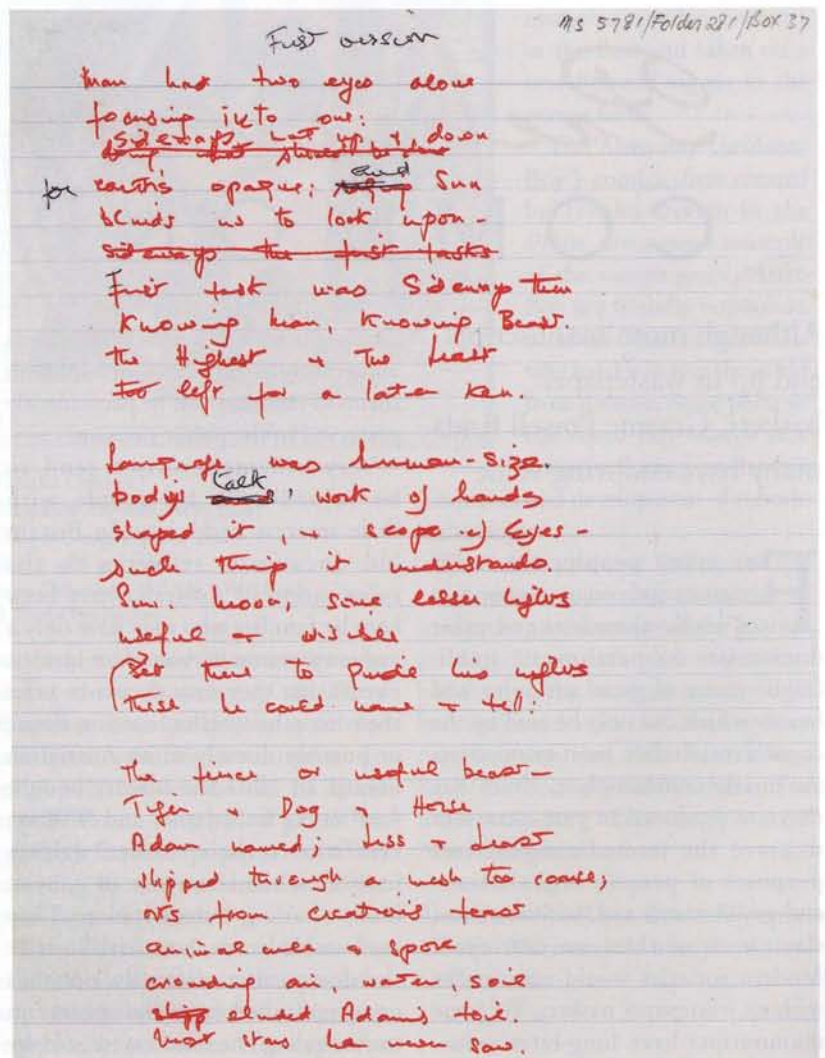 MS 5781/Folder 281/Box 37
First version
Man has two eyes alone
focusing into one:
sideways not up & down
for earth's opaque; and Sun
blinds us to look upon –
sideways the first tasks
First task was Sideways then
Knowing Man, Knowing Beast
The Highest & The Least
Too left for a later ken.
Language was human-size.
body's talk, work of hands
shaped it, & scope of Eyes –
such things it understands
Sun, moon, some lesser lights
useful or
set there to guide his nights
these he could name & tell;
The finer or useful beast –
Tiger & Dog & Horse
Adam named; Less & Least
slipped through a mesh too coarse;
orts from creation's feast
animalcules & spore
crowding air, water, soil
slipp eluded Adam's toil.
Most stars he never saw.